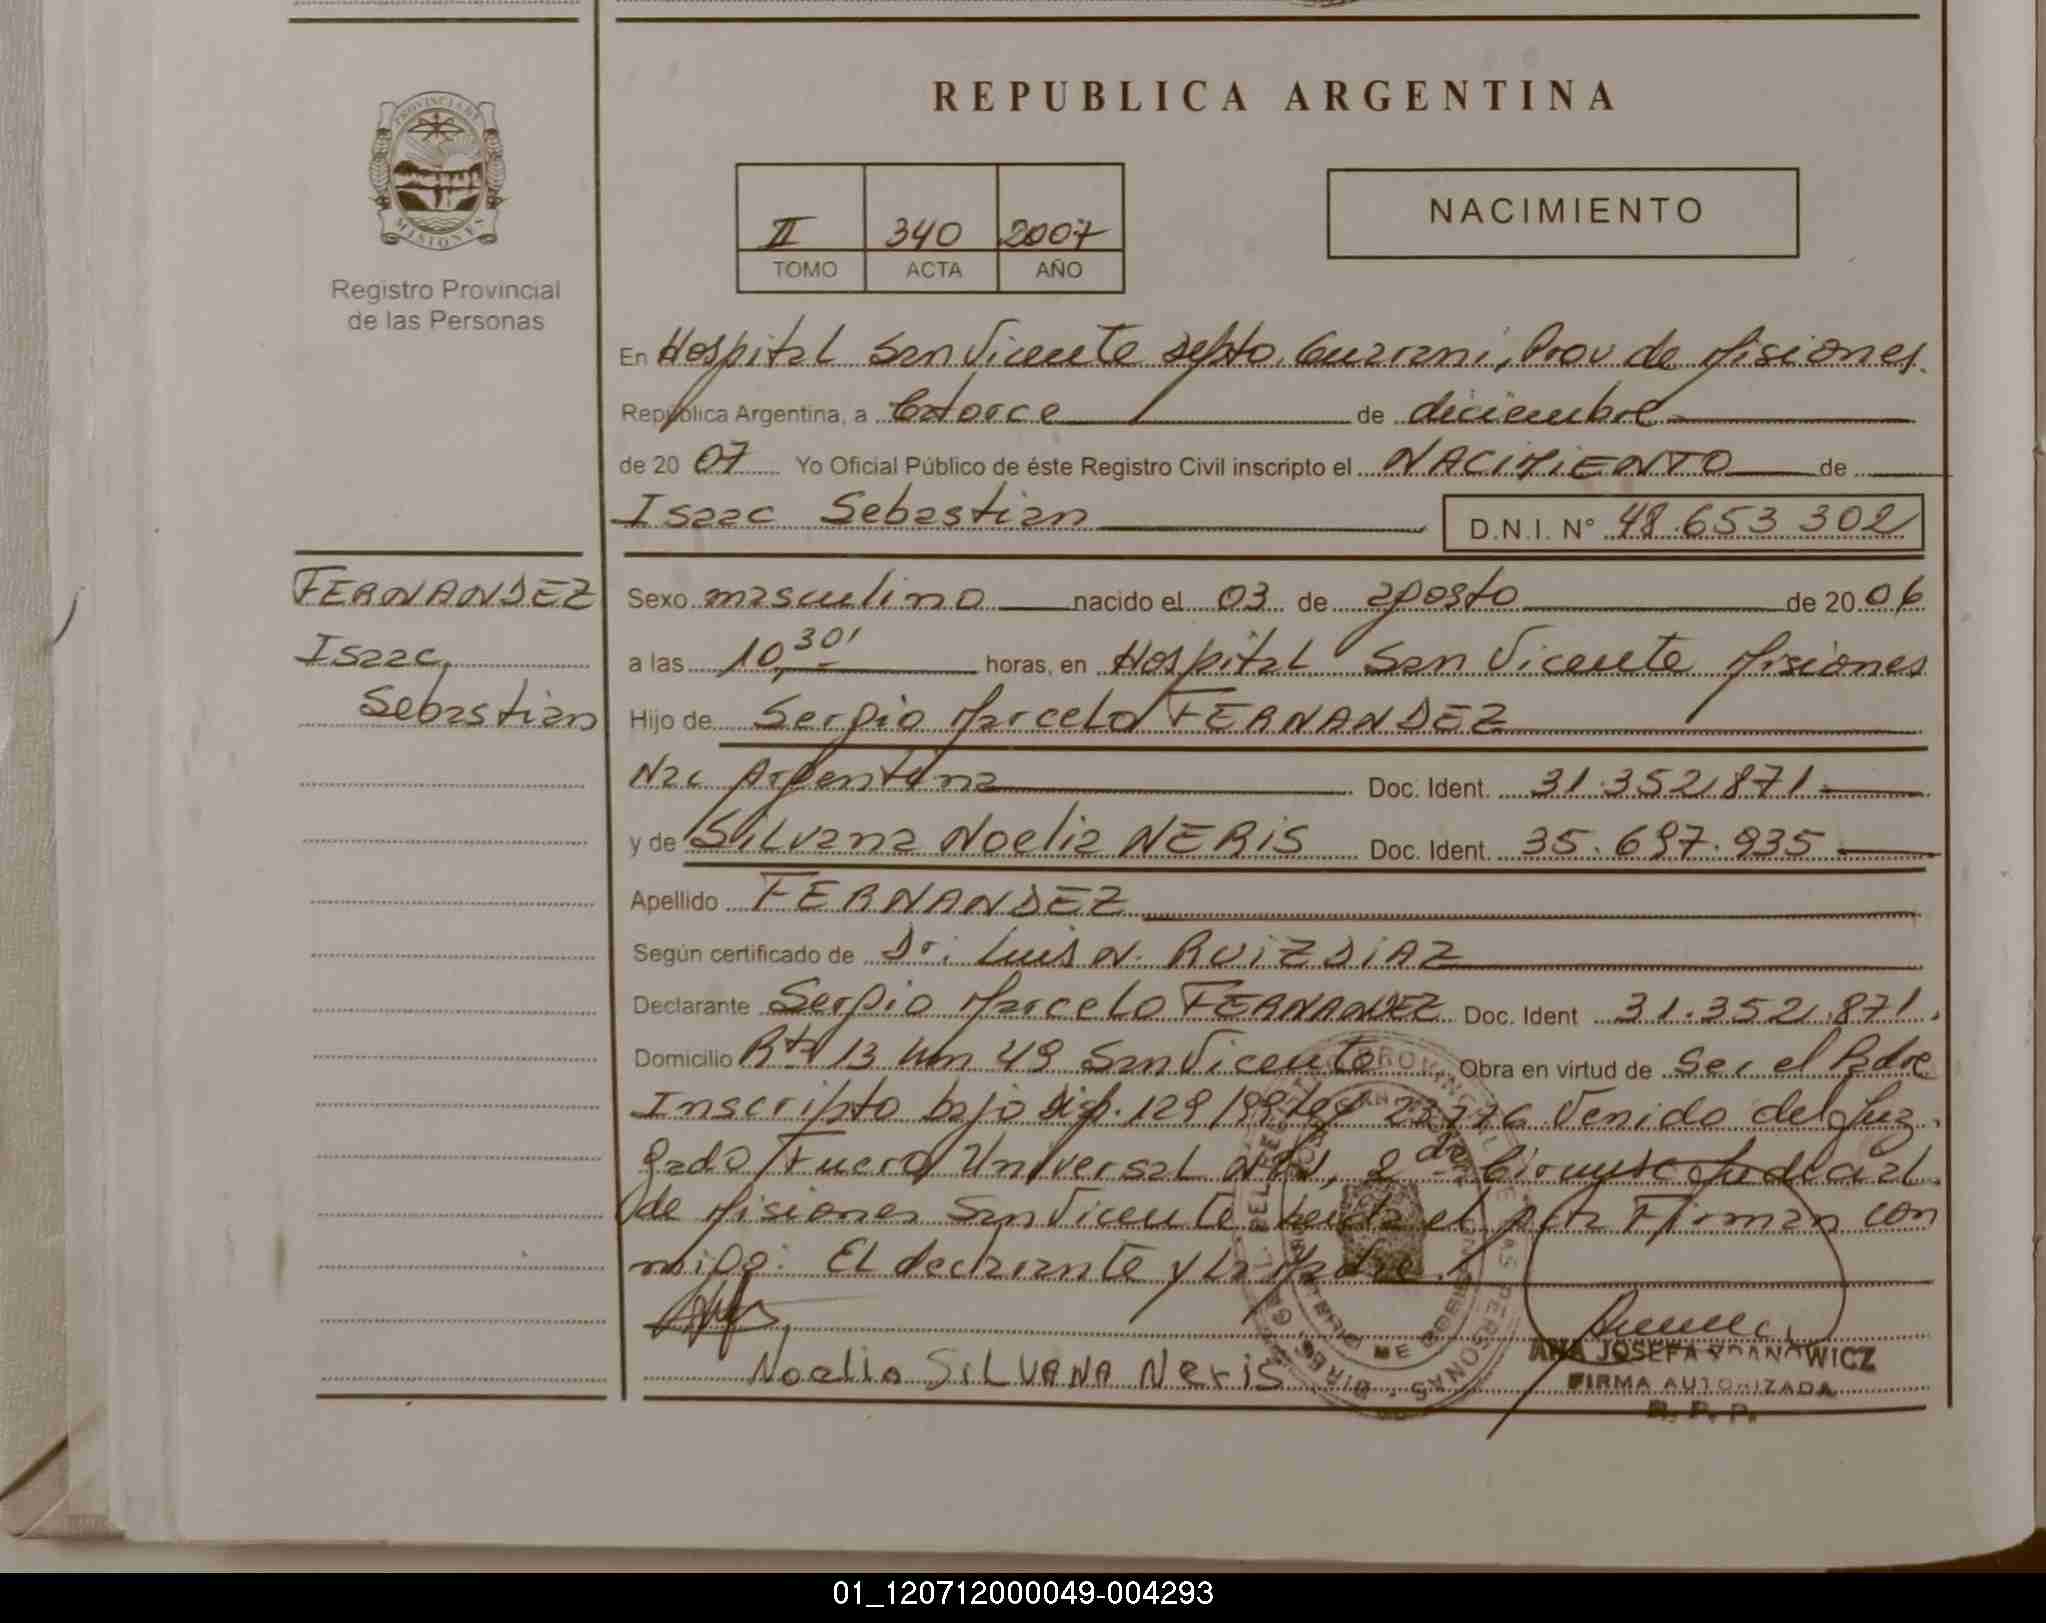 REPUBLICA ARGENTINA
PROVINCIA DE
MISIONES
Registro Provincial
de las Personas
II 340 2007
TOMO ACTA AÑO
NACIMIENTO
En Hospital San Vicente depto. Guarani, Prov de Misiones.
República Argentina, a Catorce de diciembre
de 20 07 Yo Oficial Público de éste Registro Civil inscripto el NACIMIENTO de
Isaac Sebastian D.N.I. N° 48.653 302
FERNANDEZ
Isaac,
Sebastian
Sexo masculino nacido el 03 de agosto de 20 06
a las 10,30' horas, en Hospital San Vicente Misiones
Hijo de Sergio Marcelo FERNANDEZ
Nac Argentina Doc. Ident. 31.352.871
y de Silvana Noelia NERIS Doc. Ident. 35.697.935
Apellido FERNANDEZ
Según certificado de Dr. Luis N. RUIZ DIAZ
Declarante Sergio Marcelo FERNANDEZ Doc. Ident 31.352.871.
Domicilio Rta 13 Km 49 San Vicente Obra en virtud de Ser el Padre
Inscripto bajo disp. 129/99 Venido del Juz
gado Fuero Universal 2da Circunsc Judicial
de Misiones San Vicente Leida el Acta Firman con
migo: El declarante y la Madre.
Noelia SILVANA Neris
ANA JOSEFA
FIRMA AUTORIZADA
R. P. P.
01_120712000049-004293